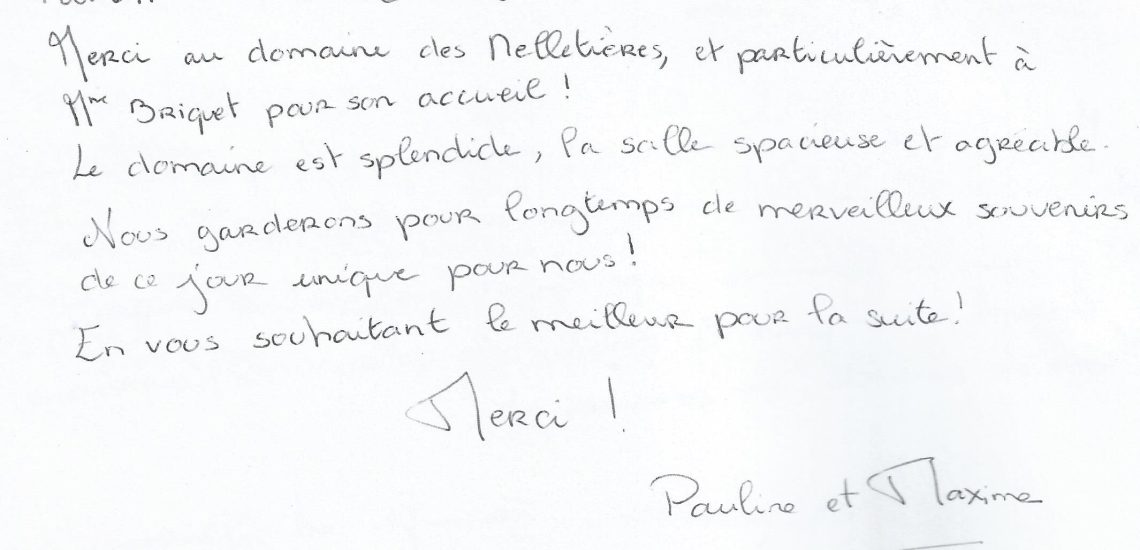 Merci au domaine des Nelletières, et particulièrement à
Mme Briquet pour son accueil !
Le domaine est splendide, la salle spacieuse et agréable.
Nous garderons pour longtemps de merveilleux souvenirs
de ce jour unique pour nous !
En vous souhaitant le meilleur pour la suite !
Merci !
Pauline et Maxime